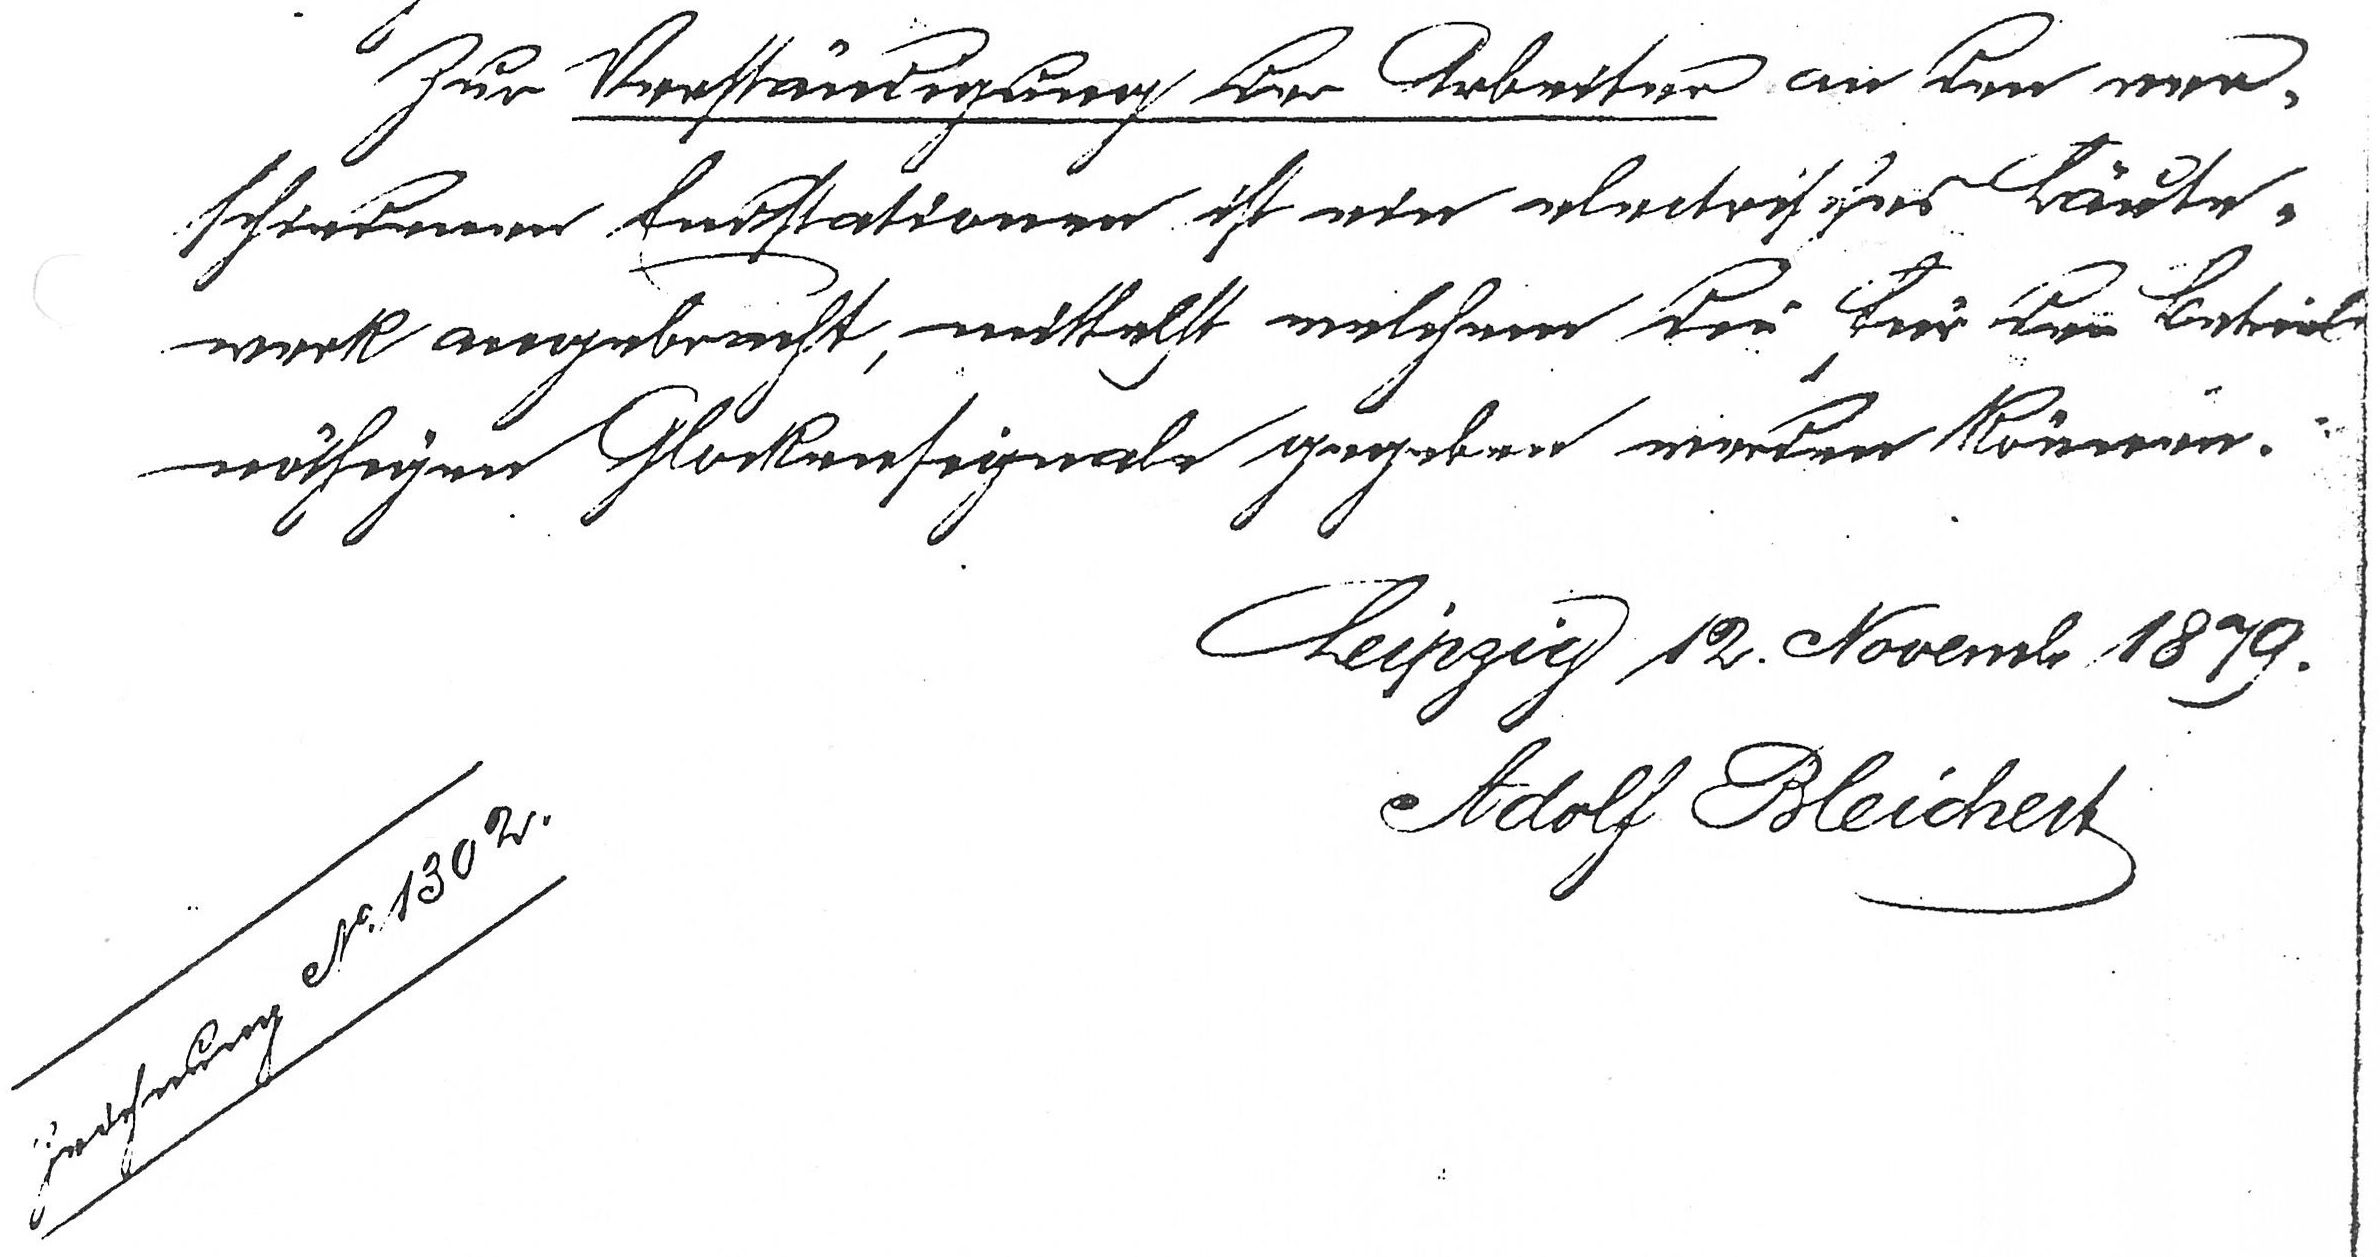 Zur Verständigung der Arbeiter an den ver-
schiedenen Endstationen ist ein electrisches Läute-
werk angebracht, mittelst welchem die für den Betrieb
nöthigen Glockensignale gegeben werden können.
Leipzig 12. Novemb 1879.
Adolf Bleichert
Zeichnung No. 1302.